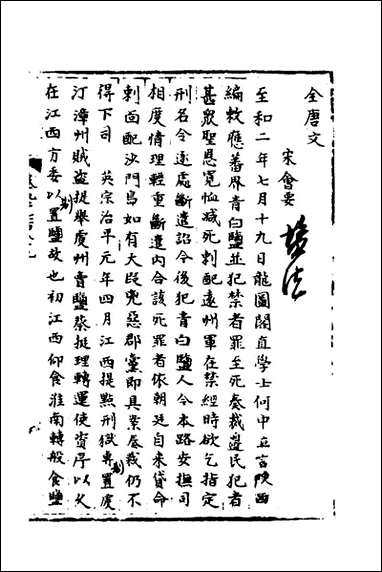 全唐文
宋會要
鹽法
至和二年七月十九日龍圖閣直學士何中立言陝西
編敕應蕃界青白鹽並犯禁者罪至死奏裁邊民犯者
甚眾聖恩寬恤減死刺配遠州軍在禁經時欲乞指定
刑名令逐處斷遣詔今後犯青白鹽人令本路安撫司
相度情理輕重斷遣內合該死罪者依朝廷自來貸命
刺面配沙門島如有大段兇惡群黨即具案奏裁仍不
得下司 英宗治平元年四月江西提點刑獄專置虔
汀漳州賊盜提舉虔州賣鹽蔡挺理轉運使資序以久
在江西方委以置鹽故也初江西仰食淮南轉般食鹽